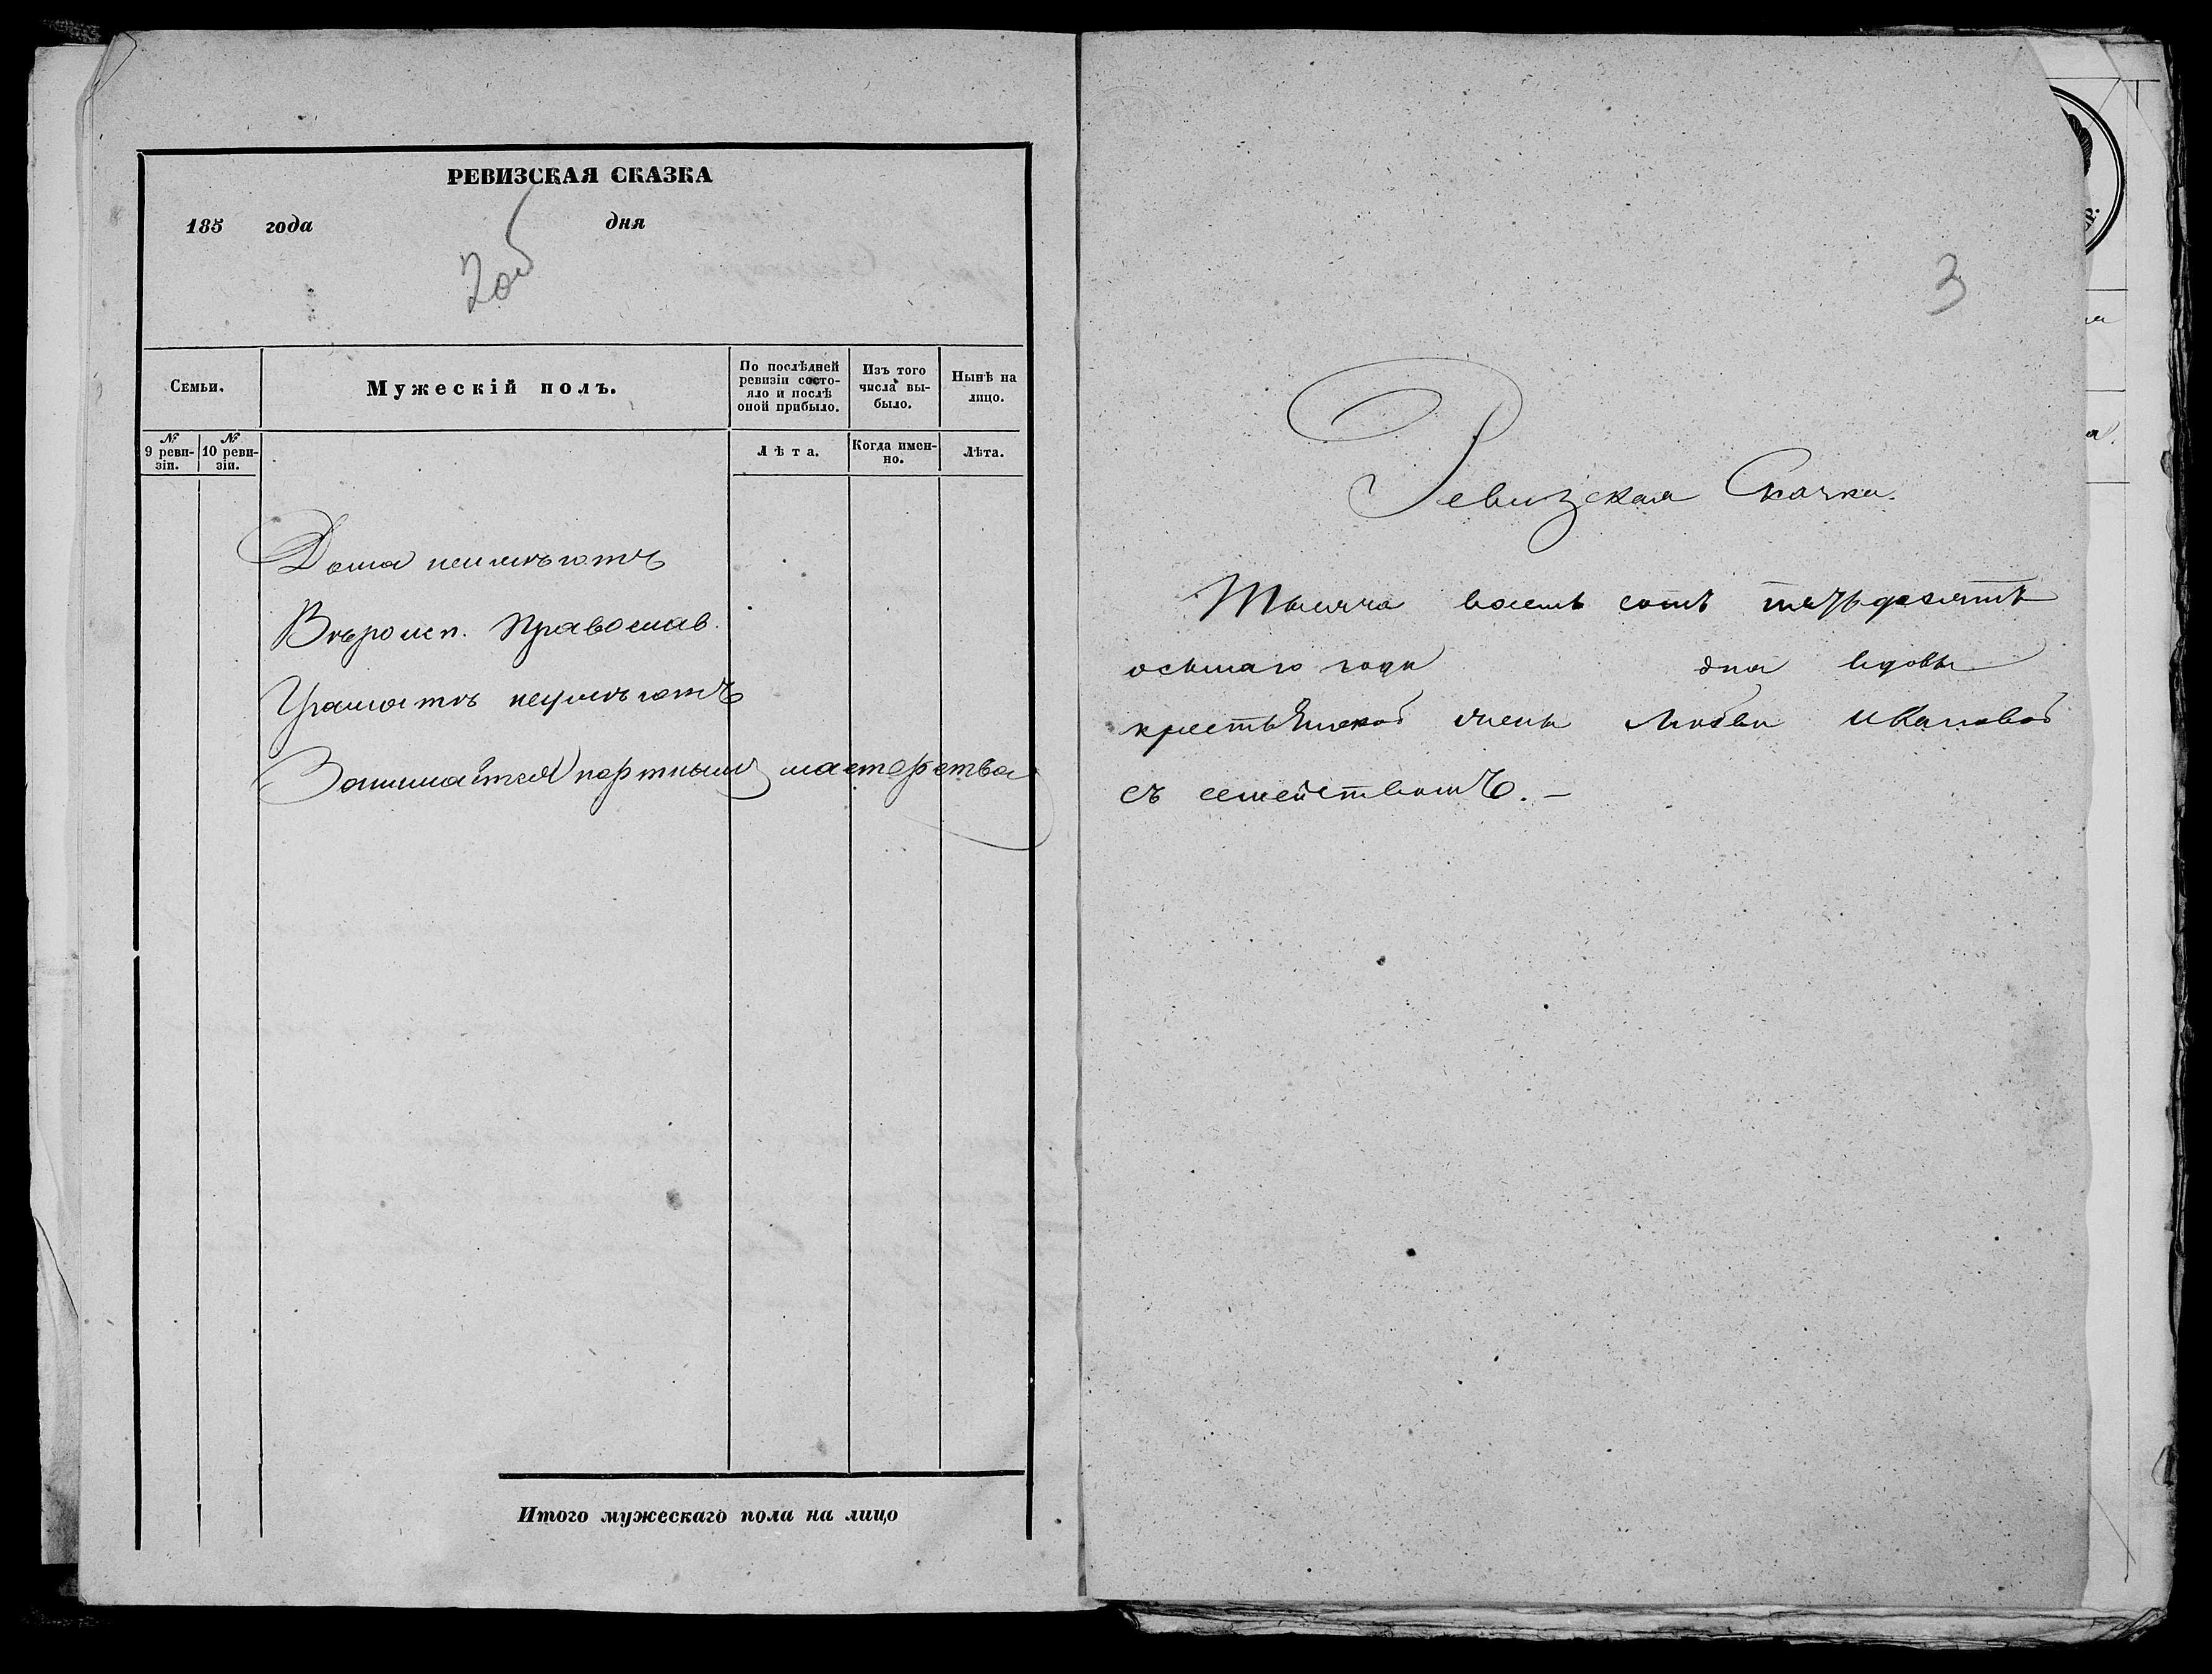 РЕВИЗСКАЯ СКАЗКА
185 года дня
2об
Семьи.
Мужескій полъ.
По послѣдней ревизіи состо-
яло и послѣ
оной прибыло.
Изъ того
числа вы-
было.
Нынѣ на
лицо.
№
9 реви-
зіи.
№
10 реви-
зіи.
Лѣта.
Когда имен-
но.
Лѣта.
Дома неимѣютъ
Вѣроисп. Православ.
Грамотѣ неумѣютъ
Занимается портнымъ мастерства
Итого мужескаго пола на лицо
3
Ревизская Сказка.
Тысяча восемь сотъ пятьдесятъ
осьмаго года дня вдовы
крестьянской жены Любви Ивановой
съ семействомъ. –